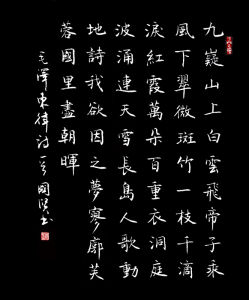 九嶷山上白雲飛帝子乘
風下翠微斑竹一枝千滴
淚紅霞萬朵百重衣洞庭
波涌連天雪長島人歌動
地詩我欲因之夢寥廓芙
蓉國里盡朝暉
毛澤東律詩一首國強書